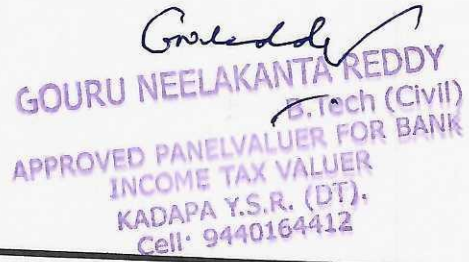 GOURU NEELAKANTA REDDY
B.Tech (Civil)
APPROVED PANELVALUER FOR BANK
INCOME TAX VALUER
KADAPA Y.S.R. (DT).
Cell: 9440164412